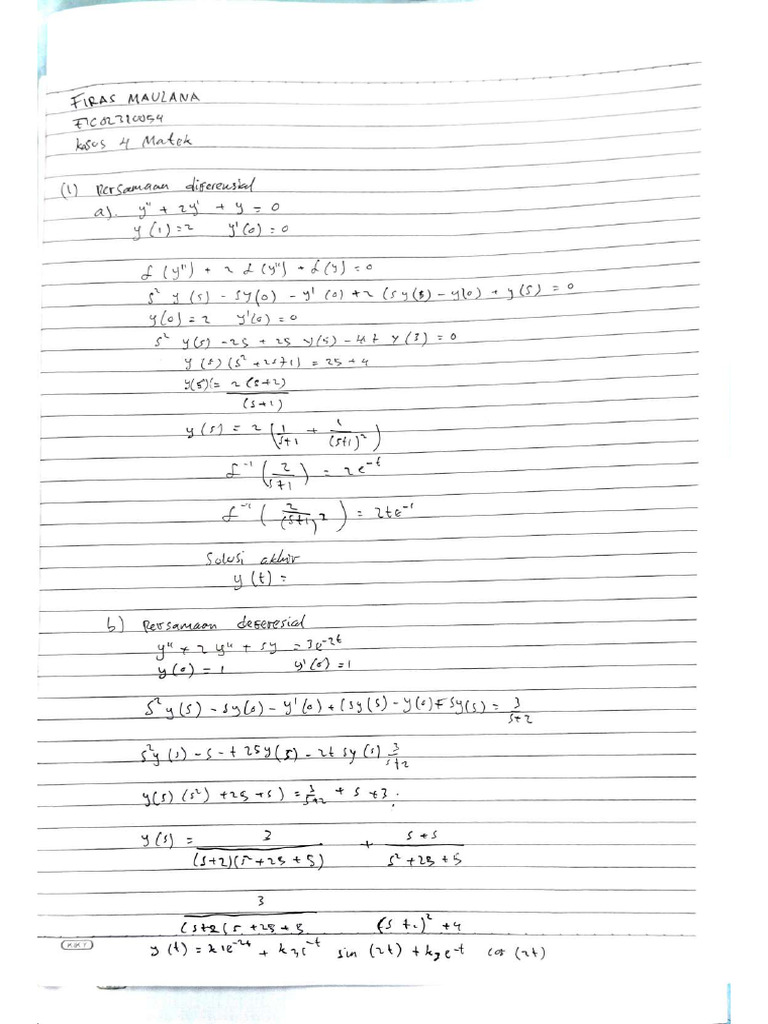 FIRAS MAULANA
F1C02310054
Kasus 4 Matek
(1) Persamaan diferensial
a). y" + 2y' + y = 0
y (1) = 2 y'(0) = 0
ℒ (y") + 2 ℒ (y") + ℒ (y) = 0
s² y (s) - sy(0) - y' (0) + 2 (sy(s) - y(0) + y(s) = 0
y(0) = 2 y'(0) = 0
s² y(s) - 2s + 2s y(s) - 4 + y(s) = 0
y (s) (s² + 2s+1) = 2s + 4
y(s) = 2 (s+2) / (s+1)
y (s) = 2 (1/s+1 + 1/(s+1)²)
ℒ⁻¹ (2/s+1) = 2e⁻ᵗ
ℒ⁻¹ (2/(s+1)²) = 2te⁻¹
Solusi akhir
y (t) =
b) Persamaan deferesial
y" + 2 y" + 5y = 3e⁻²ᵗ
y (0) = 1 y' (0) = 1
s² y (s) - sy(0) - y' (0) + (sy (s) - y(0) + 5y(s) = 3/s+2
s²y (s) - s - + 2sy(s) - 2 + 5y (s) 3/s+2
y(s) (s²) + 2s + 5) = 3/s+2 + s + 3.
y (s) = 3/(s+2)(s + 2s + 5) + s + s/s² + 2s + 5
3/(s+2(s + 2s + 5 (s +.)² + 4
y (t) = k1e⁻²ᵗ + k₂e⁻ᵗ sin (2t) + k₃e⁻ᵗ cos (2t)
KIKY